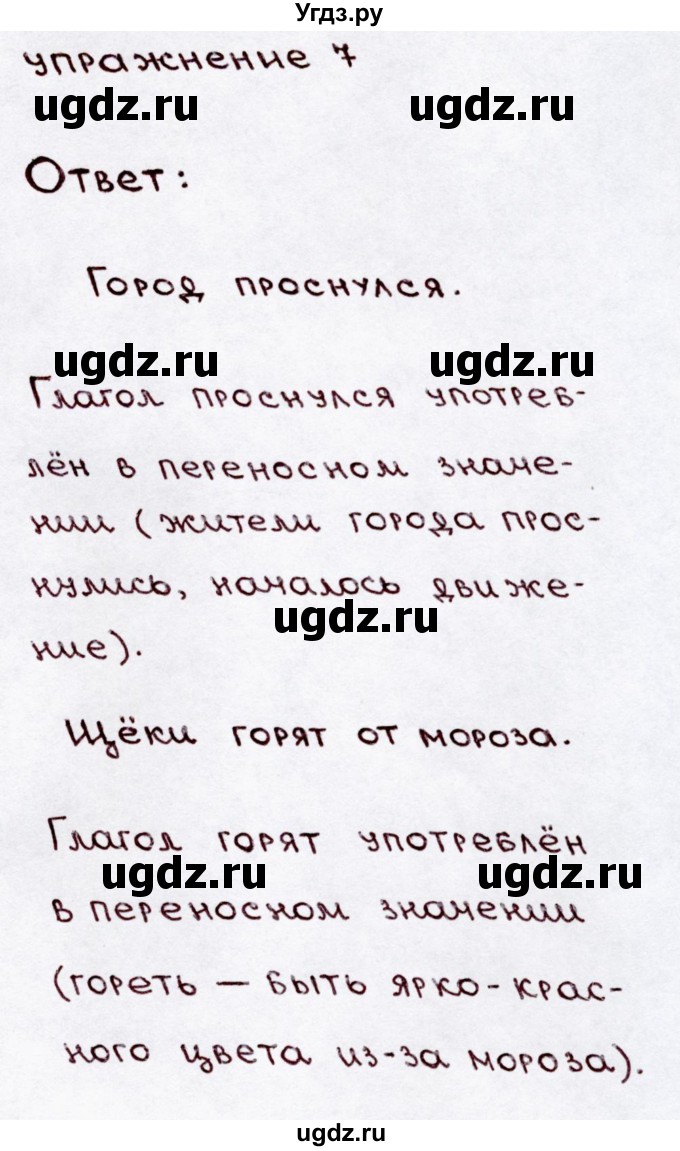 Угдз.ру
упражнение 7
ugdz.ru ugdz.ru
Ответ:
Город проснулся.
ugdz.ru ugdz.ru
Глагол проснулся употреб-
лён в переносном значе-
нии (жители города прос-
нулись, началось движе-
ugdz.ru
ние).
Щёки горят от мороза.
Глагол горят употреблён
ugdz.ru ugdz.ru
в переносном значении
(гореть — быть ярко-крас-
ного цвета из-за мороза).
ugdz.ru